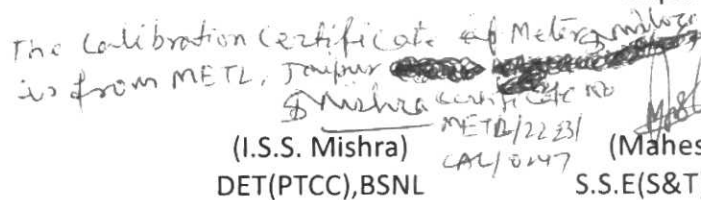 The Calibration Certificate of Meter
is from METL, Jaipur
Mishra Certificate No
METL/2223/
CAL/0147
(I.S.S. Mishra) (Mahes
DET(PTCC),BSNL S.S.E(S&T